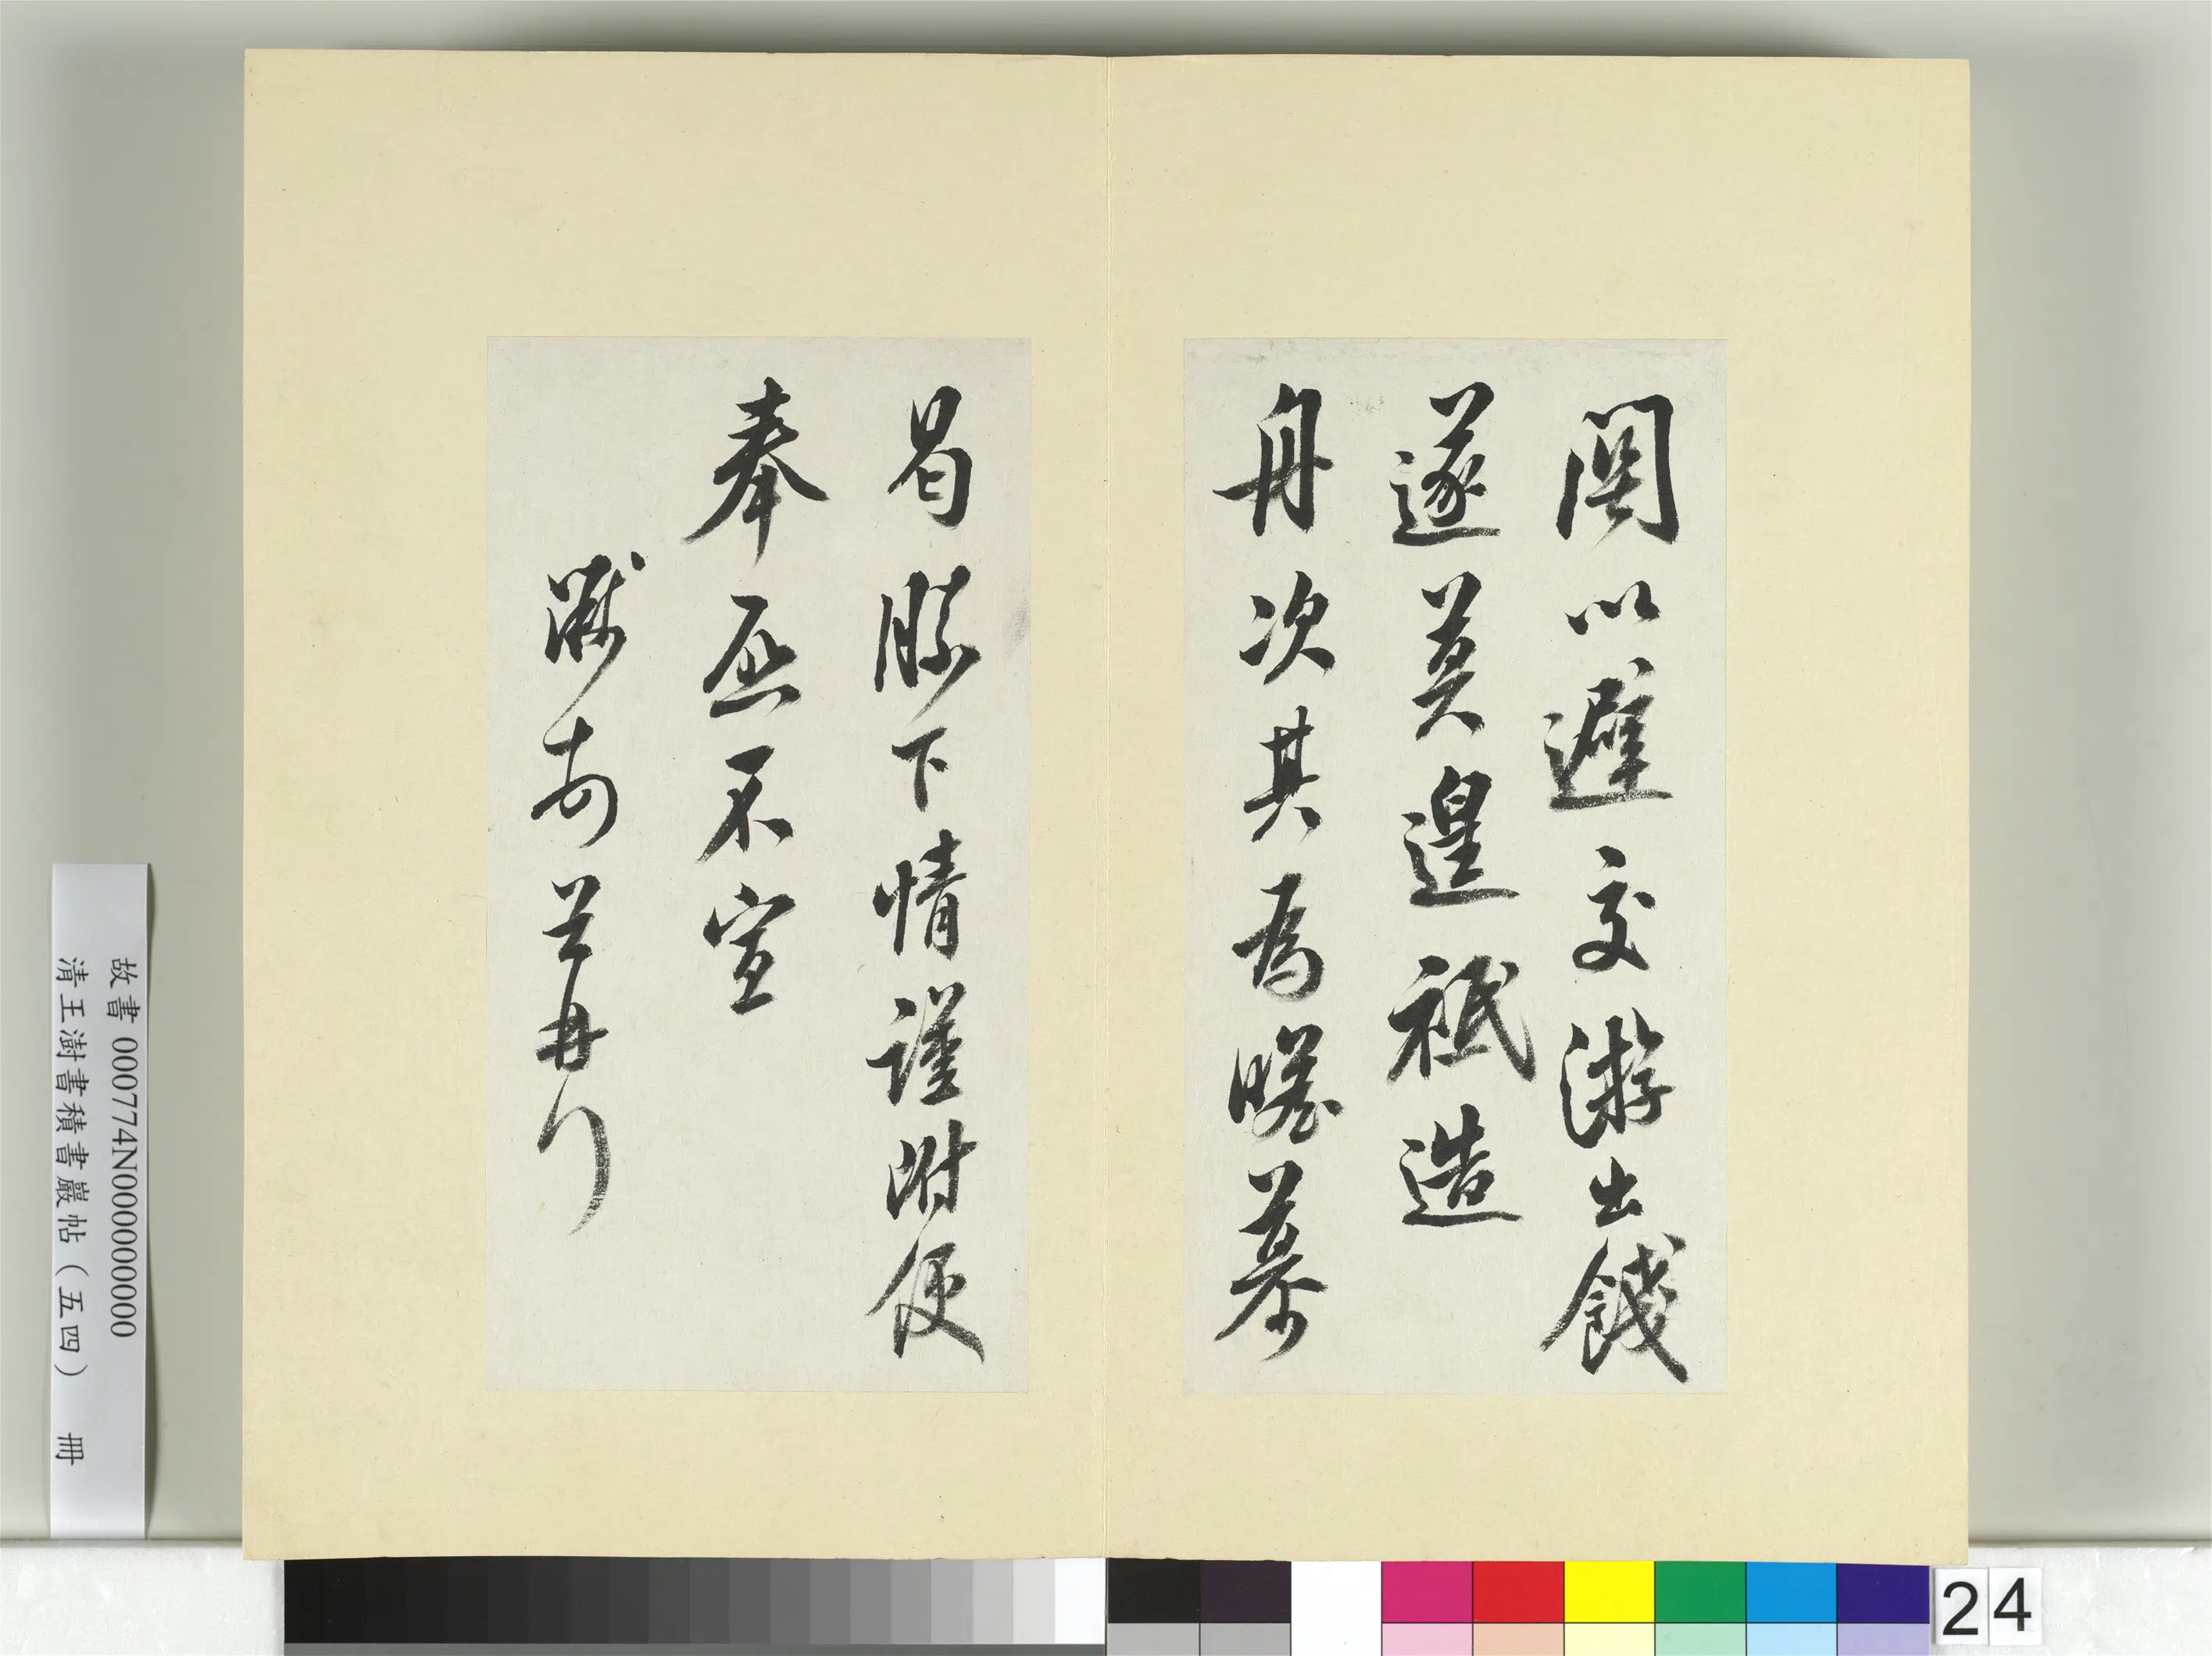 関以避交游出餞
遂莫遑祗造
舟次其為瞻慕
曷勝下情謹附便
奉啓不宣
故書 000774N000000000
清王澍書積書巖帖（五四） 冊
24